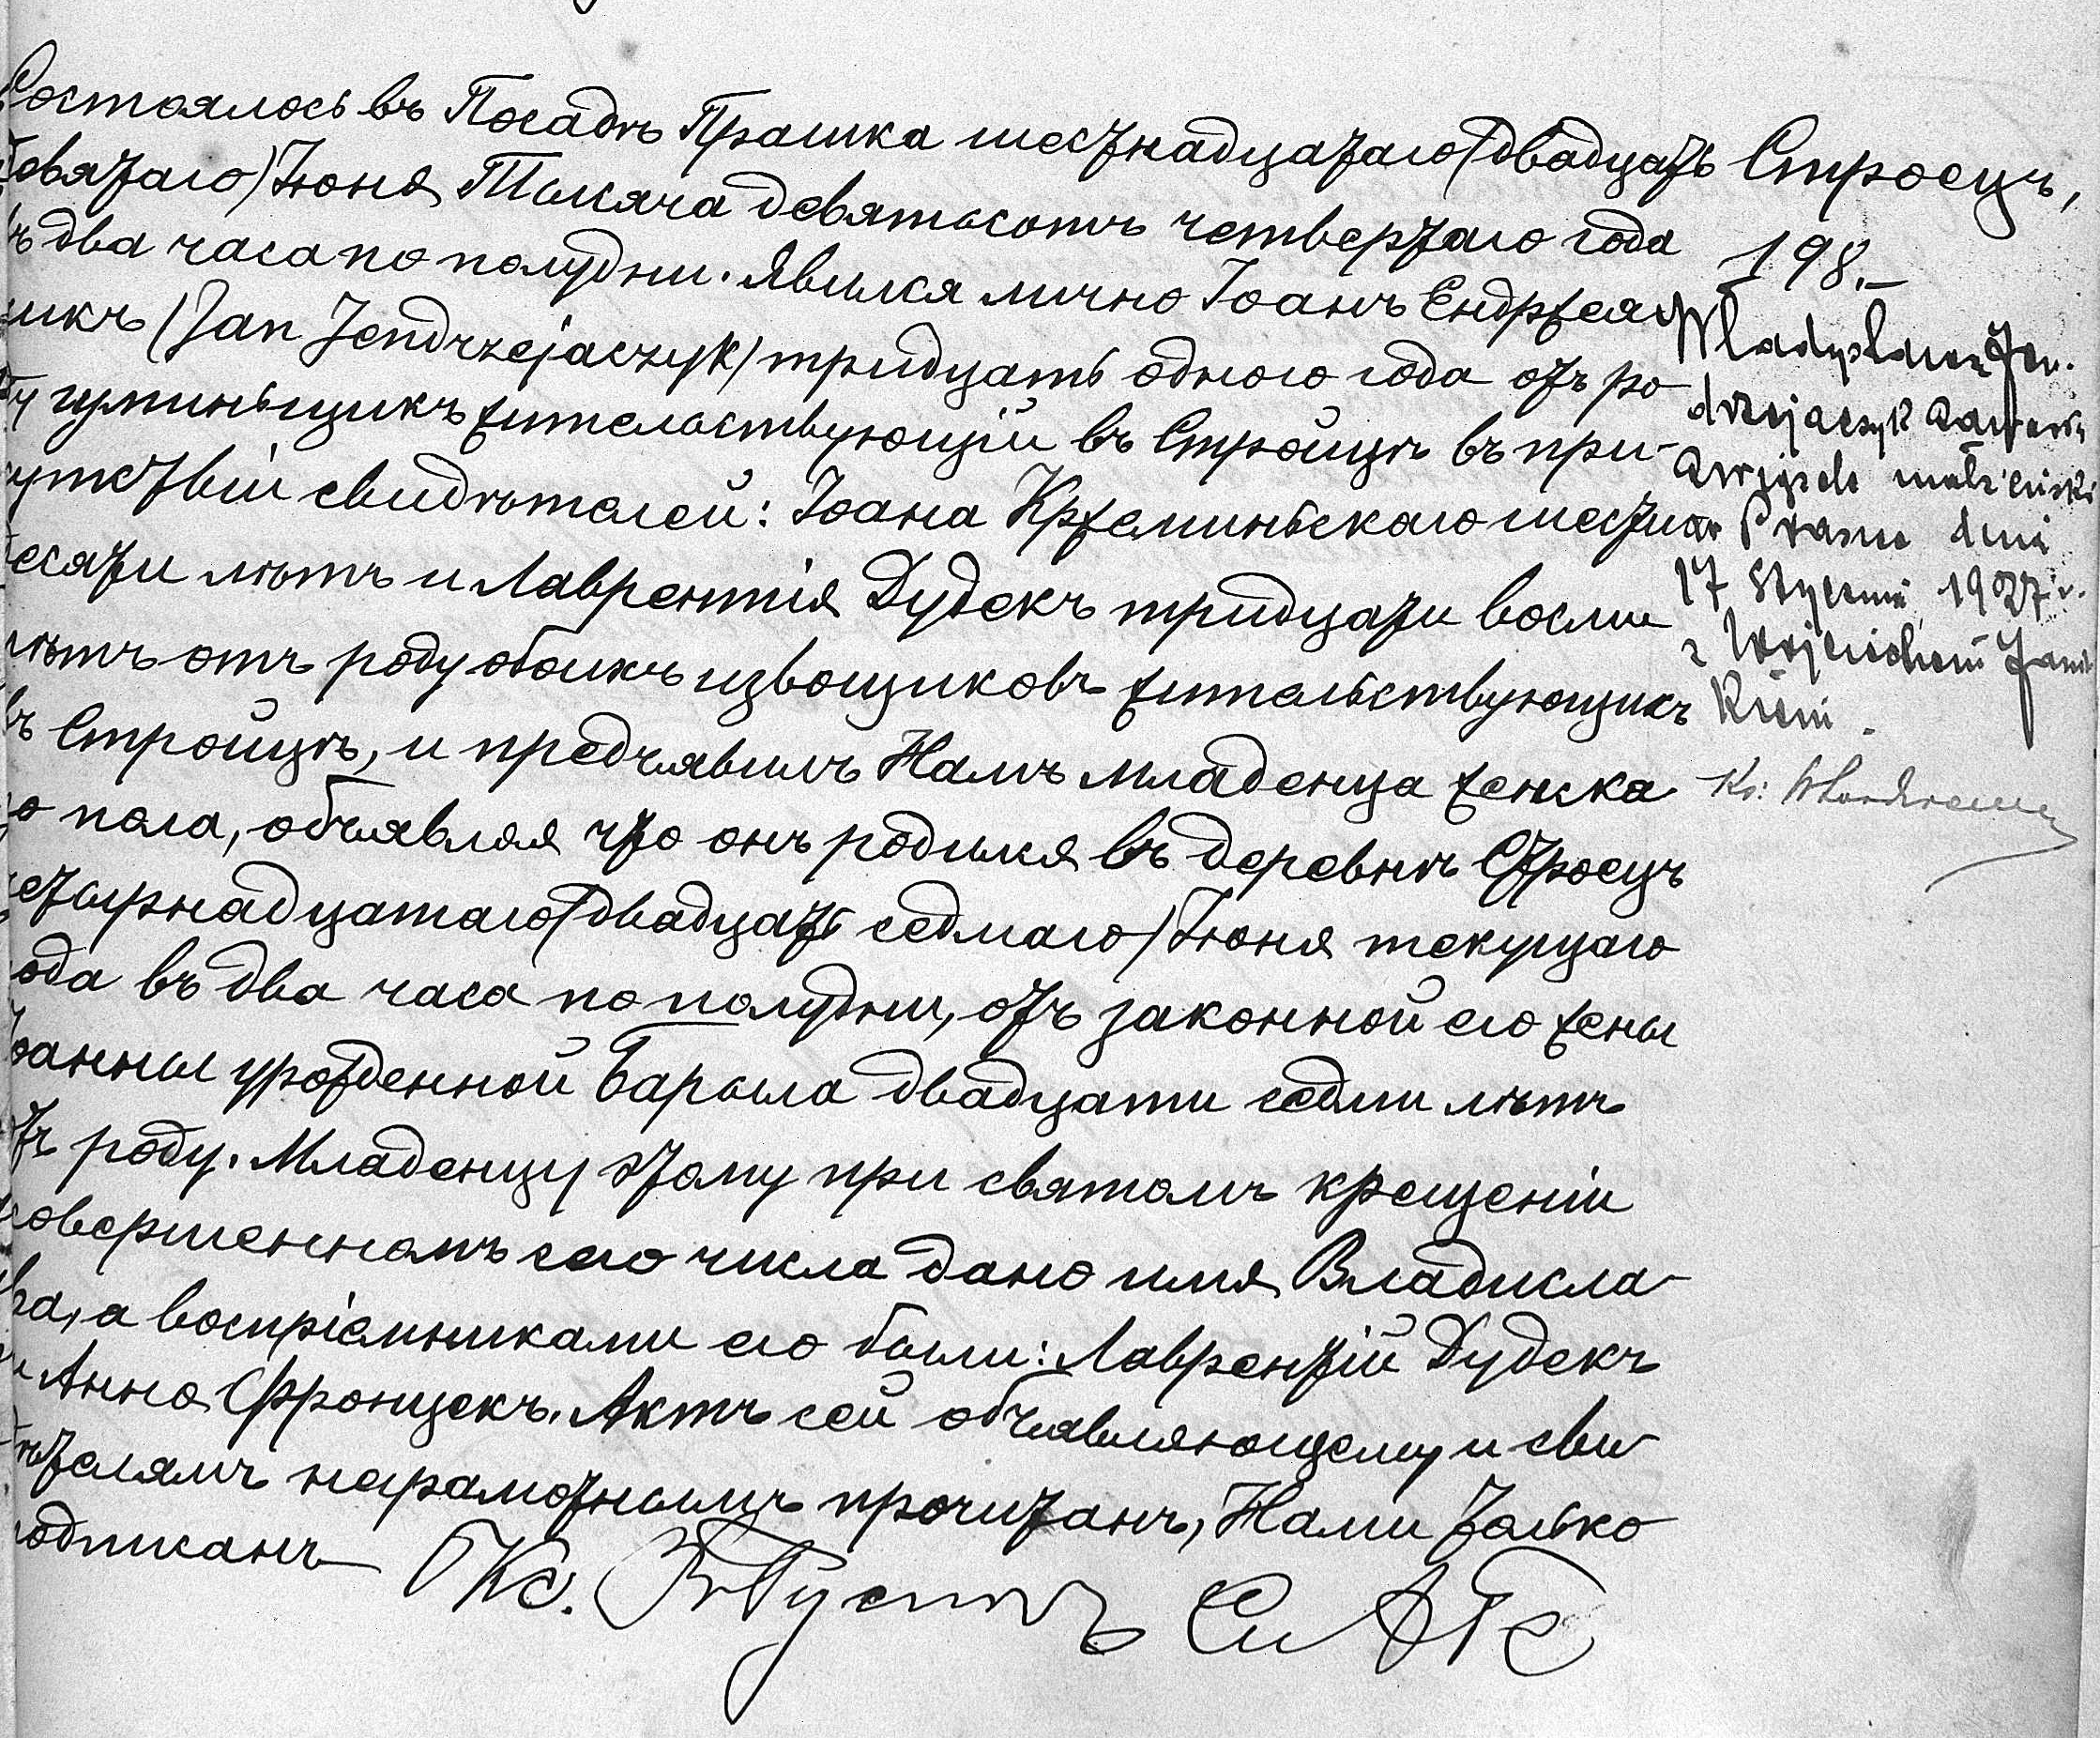 Состоялось въ Посадѣ Прашка шестнадцатаго (двадцать
девятаго) Іюня Тысяча девятьсотъ четвертаго года
въ два часа по полудни. Явился лично Іоанъ Ендржея
щикъ (Jan Jendrzejaszyk) тридцать одного года отъ ро
ду жительствующій въ Стройцѣ въ при-
сутствіи свидѣтелей: Іоана Кржеминьскаго шести
десяти лѣтъ и Лаврентія Дудекъ тридцати восми
лѣтъ отъ роду обоихъ извощиковъ жительствующихъ
въ Стройцѣ, и предъявилъ Намъ младенца женска
го пола, объявляя что онъ родился въ деревнѣ Строецъ
четырнадцатаго (двадцать седмаго) Іюня текущаго
года въ два часа по полудни, отъ законной его жены
Іоанны урожденной Барыла двадцати седми лѣтъ
отъ роду. Младенцу этому при святомъ крещеніи
совершенномъ сего числа дано имя Владисла-
ва, а воспріемниками его были: Лаврентій Дудекъ
и Анна Фронцекъ. Актъ сей объявляющему и сви
дѣтелямъ неграмотнымъ прочитанъ, Нами только
подписанъ Кс.
Строецъ,
198.
Władysława Jen.
drzejaszyk zawarła
związek małżeński
w Praszce dnia
17 Stycznia 1927 r.
z Wojciechem Jani
kiem.
Ks: